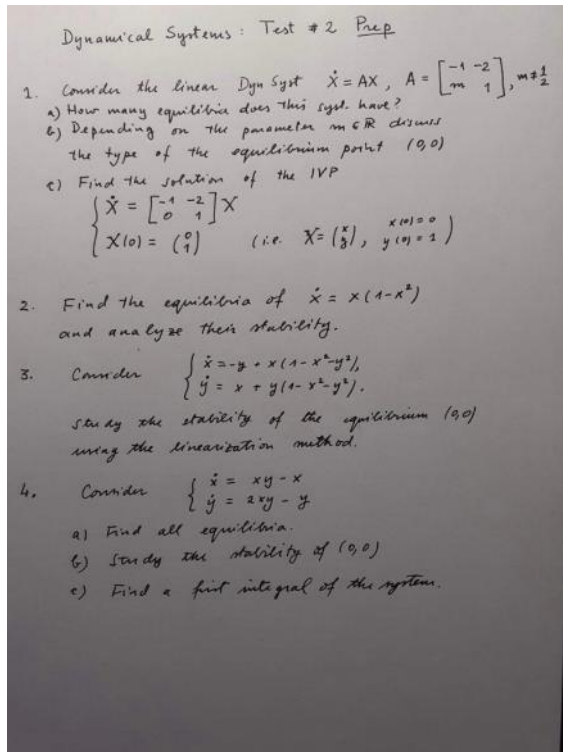 Dynamical Systems: Test # 2 Prep
1. Consider the linear Dyn Syst Ẋ = AX, A = [-1 -2; m 1], m ≠ 1/2
a) How many equilibria does this syst. have?
b) Depending on the parameter m ∈ R discuss
the type of the equilibrium point (0,0)
c) Find the solution of the IVP
{ Ẋ = [-1 -2; 0 1] X
X(0) = (0; 1) (i.e. X = (x; y), x(0) = 0, y(0) = 1)
2. Find the equilibria of ẋ = x(1-x²)
and analyze their stability.
3. Consider { ẋ = -y + x(1-x²-y²),
ẏ = x + y(1-x²-y²).
Study the stability of the equilibrium (0,0)
using the linearization method.
4. Consider { ẋ = xy - x
ẏ = 2xy - y
a) Find all equilibria.
b) Study the stability of (0,0)
c) Find a first integral of the system.